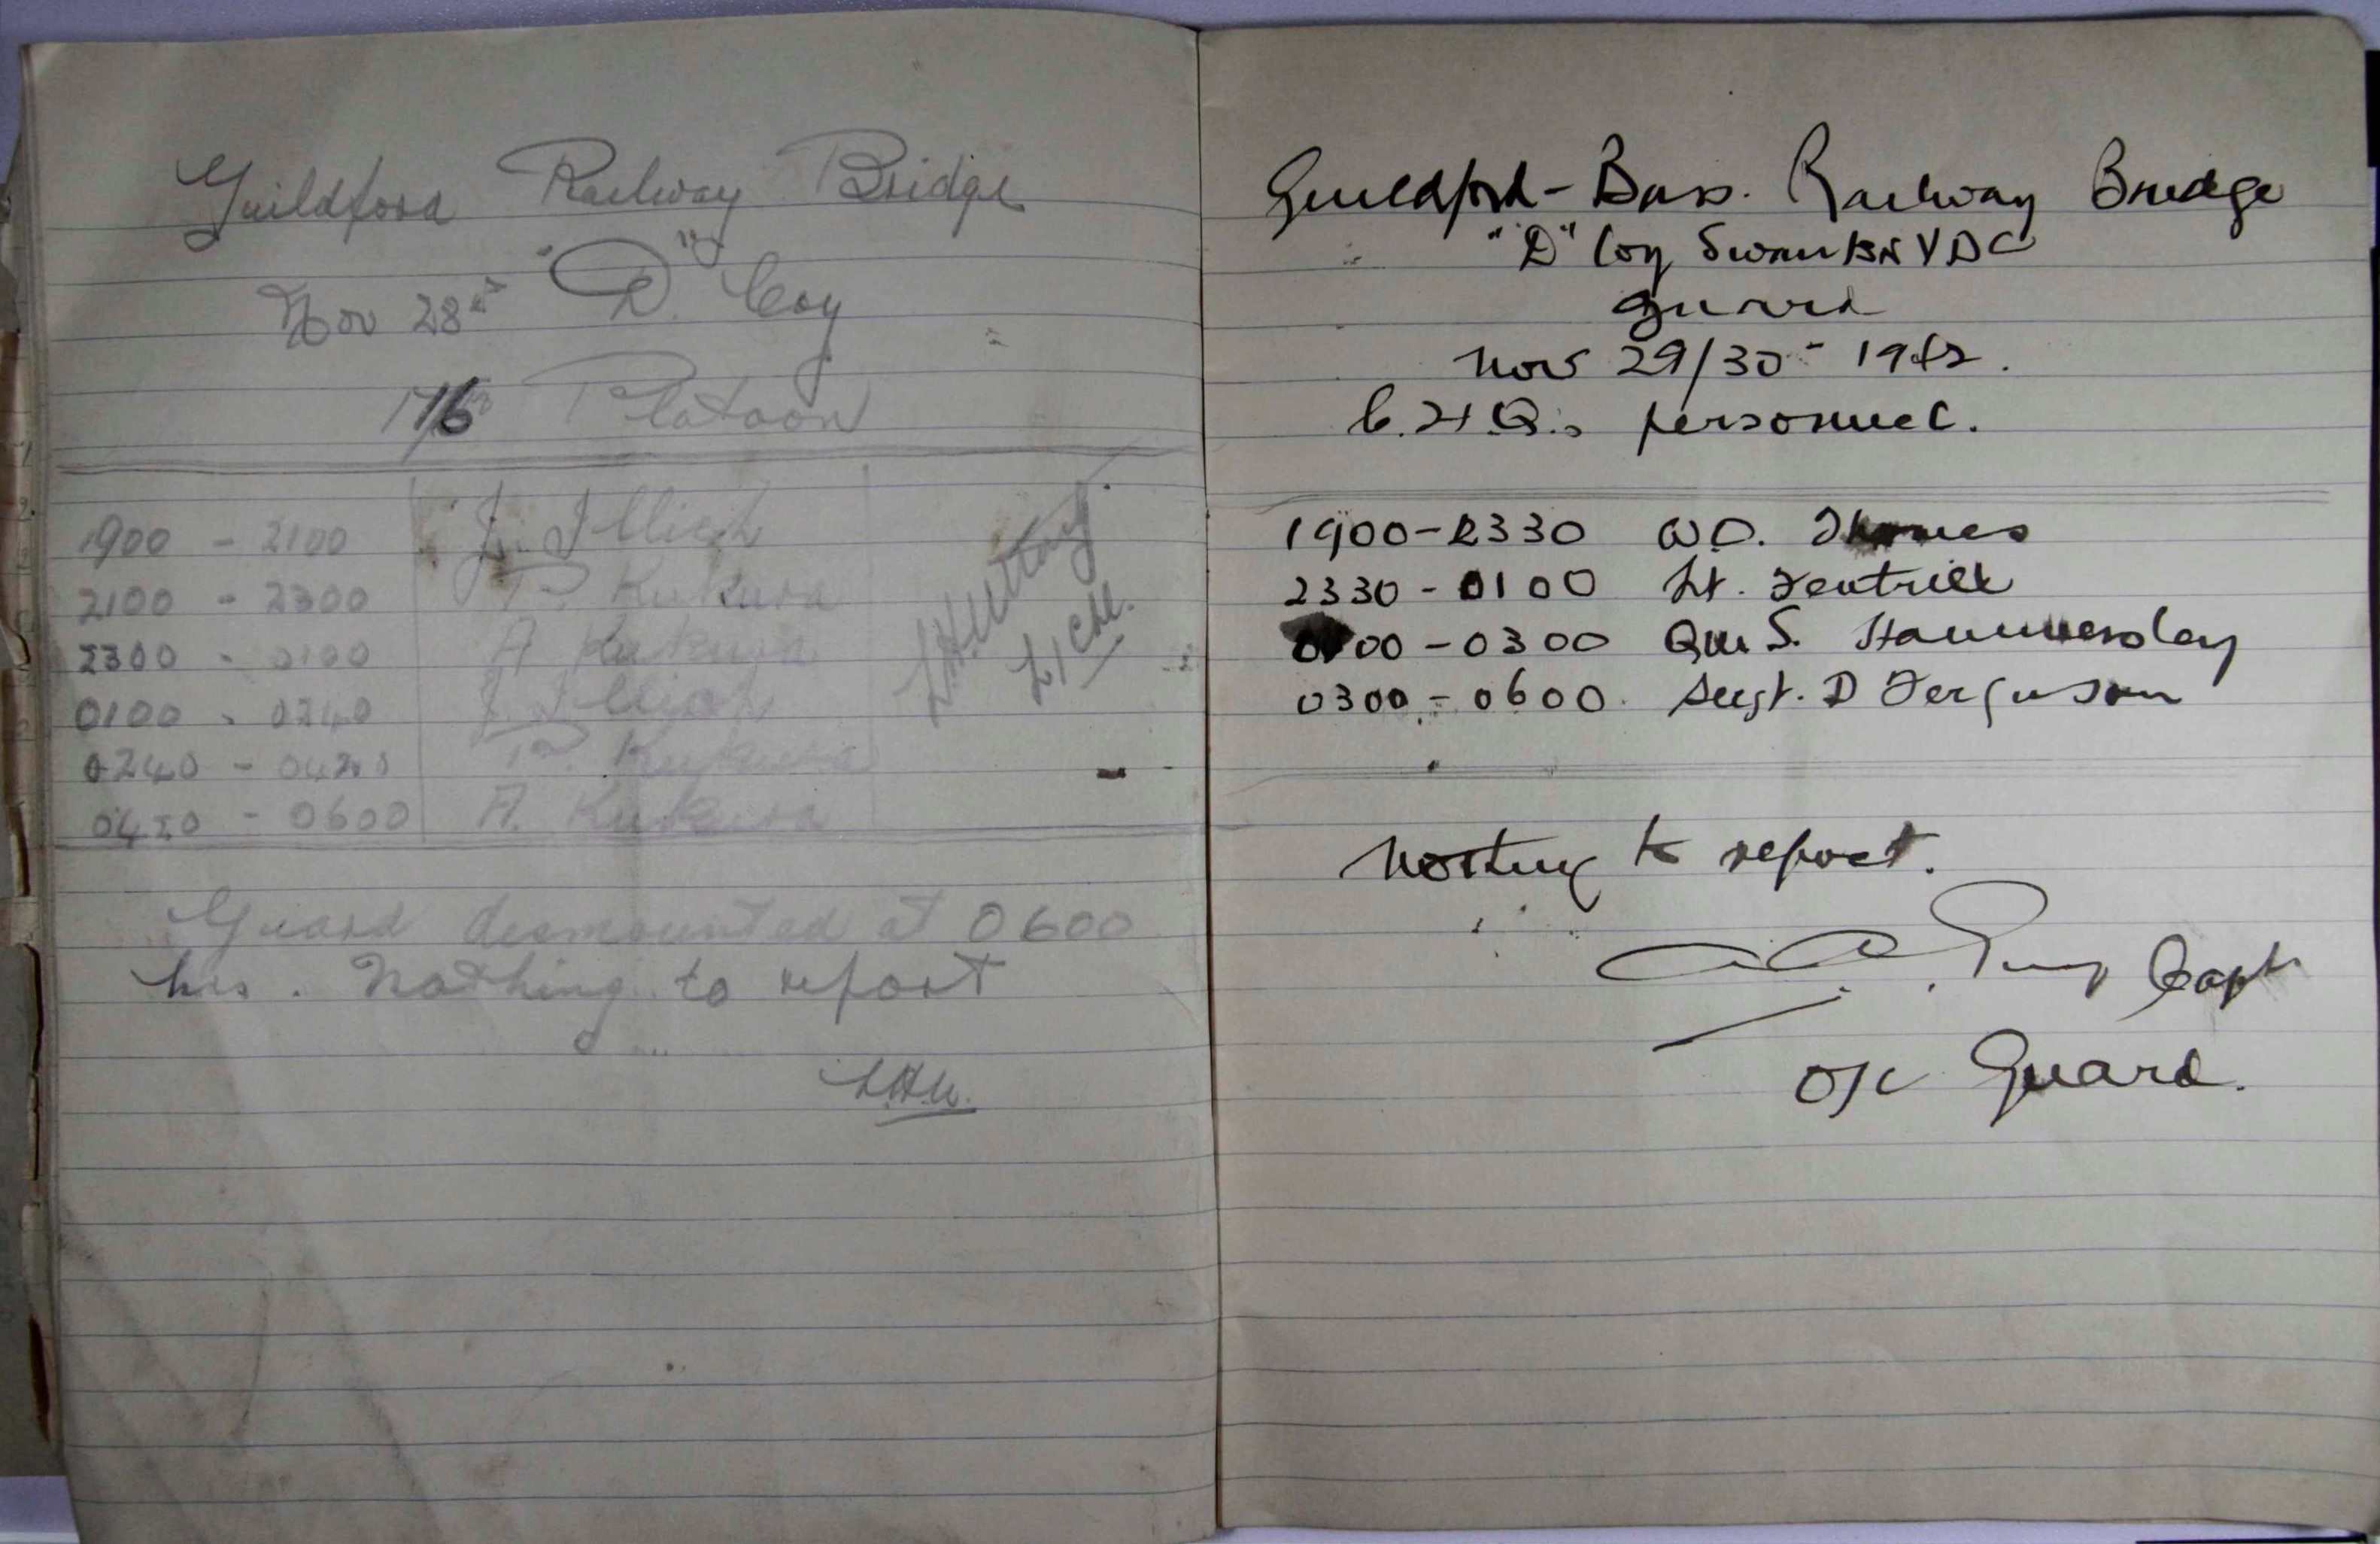 Guildford Railway Bridge
Nov 28th "D" Coy
16 Platoon
1900 - 2100 J. Illich
2100 - 2300 P. Kukura
2300 - 0100 A Kukura
0100 - 0240 J. Illich
0240 - 0420 P. Kukura
0420 - 0600 A. Kukura
L/Cpl.
Guard dismounted at 0600
hrs. Nothing to report
Guildford - Bass. Railway Bridge
"D" Coy Swan BN VDC
Guard
Nov 29/30 - 1942.
C.H.Q.s personnel.
1900-2330 W.O. Thomes
2330 - 0100 Lt. Fentrill
0100 - 0300 QM S. Hammersley
0300 - 0600 Sergt. D Ferguson
Nothing to report.
Capt
O/C Guard.